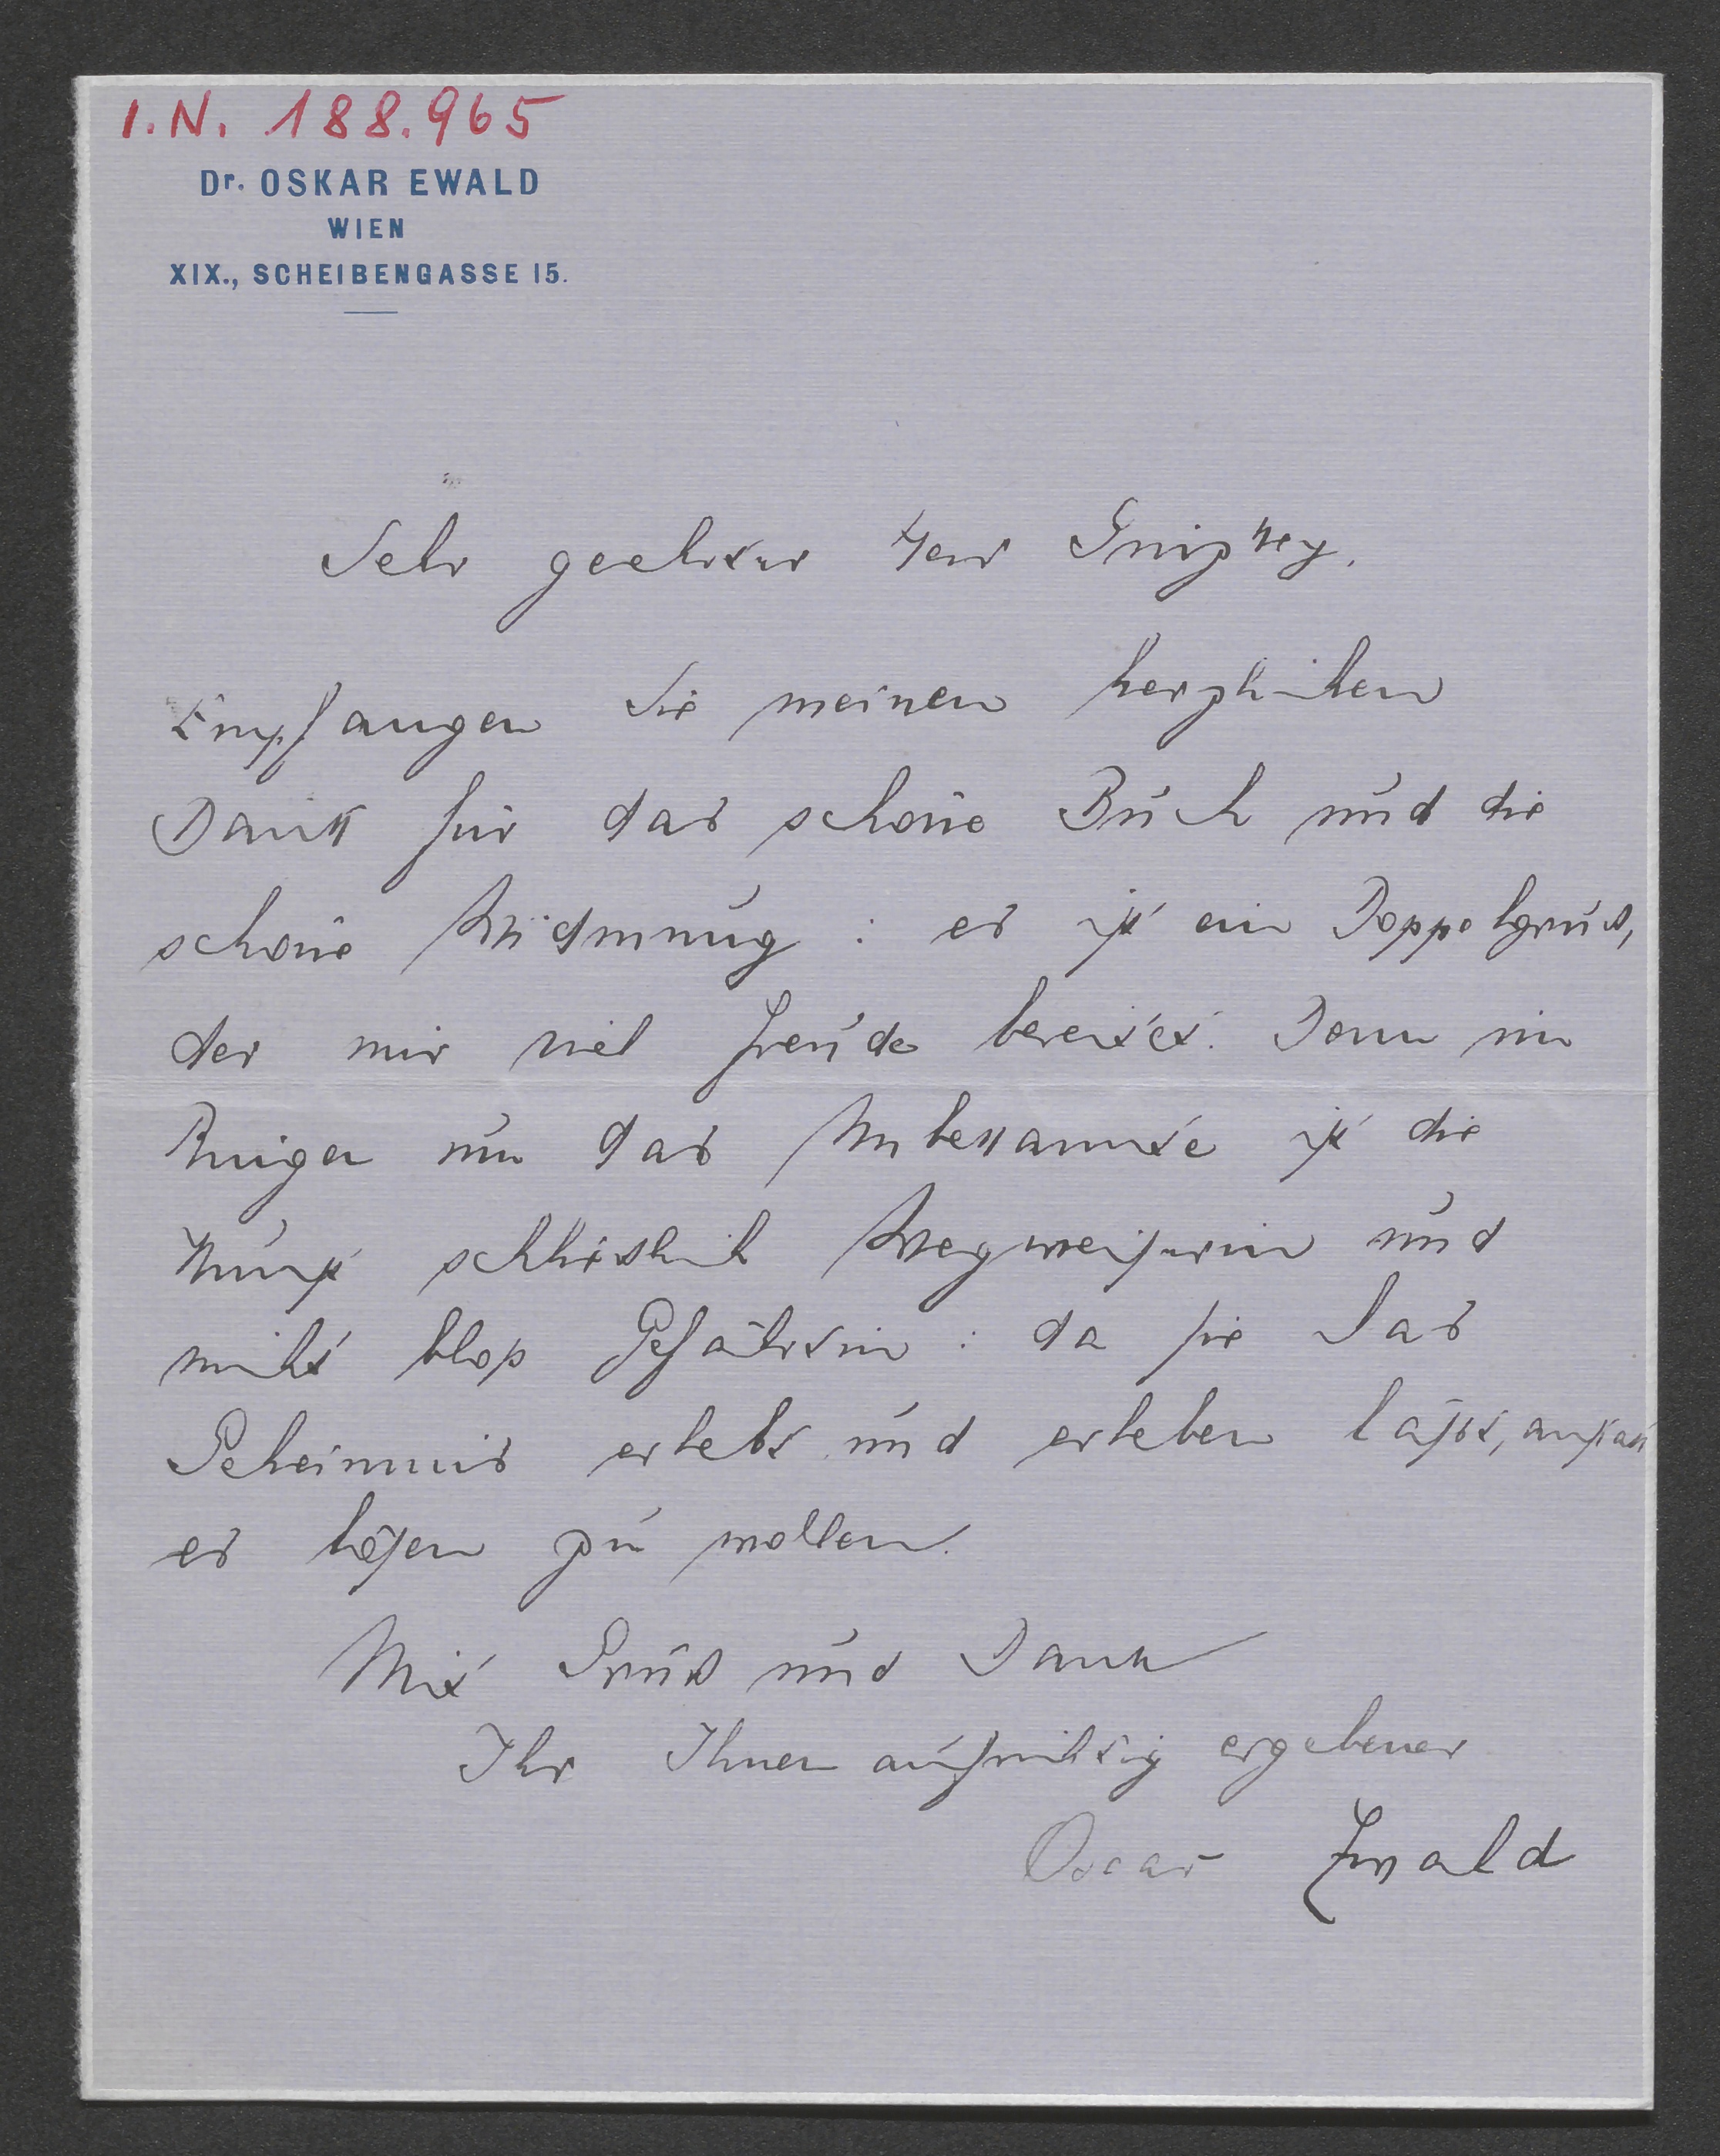 I.N. 188.965
Dr. OSKAR EWALD
WIEN
XIX., SCHEIBENGASSE 15.
Sehr geehrter Herr Ginzkey.
Empfangen Sie meinen herzlichen
Dank für das schöne Buch und die
schöne Widmung : es ist ein Doppelgruß,
der mir viel Freude bereitet. Denn im
Ringen um das Unbekannte ist die
Kunst schließlich Wegweiserin und
nicht bloß Gefährtin : da sie das
Geheimnis erlebt und erleben lässt, anstatt
es lösen zu wollen.
Mit Gruß und Dank
Ihr Ihnen aufrichtig ergebener
Oscar Ewald